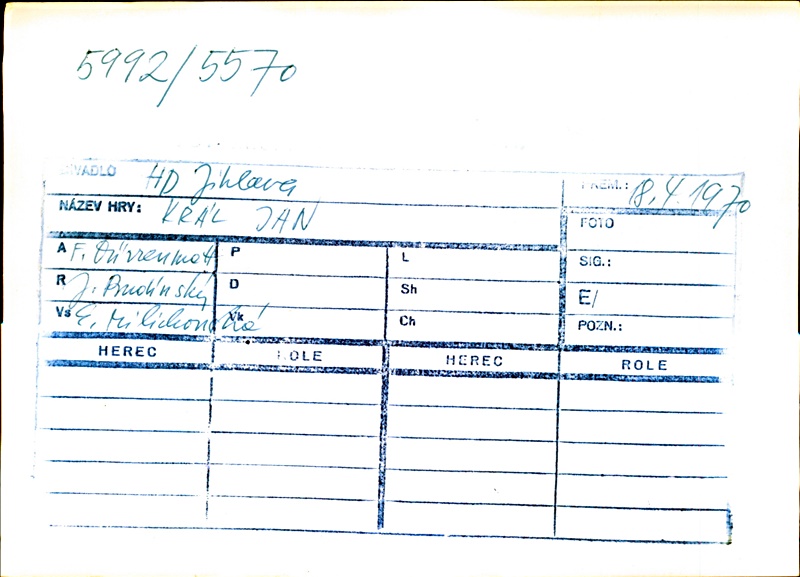 5992/5570
DIVADLO HD Jihlava PREM.: 18.4.1970
NÁZEV HRY: KRÁL JAN FOTO
A F. Dürrenmatt P L SIG.:
R J. Budínský D Sh E/
Vs E. Milichovská Vk Ch POZN.:
HEREC ROLE HEREC ROLE